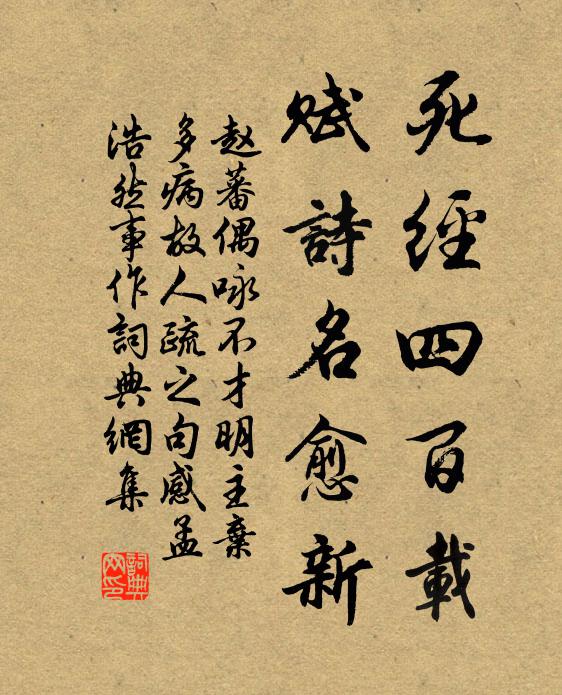 死經四百載
賦詩名愈新
赵蕃偶咏不才明主棄
多病故人疏之句感孟
浩然事作詞典網集
詞典
网印